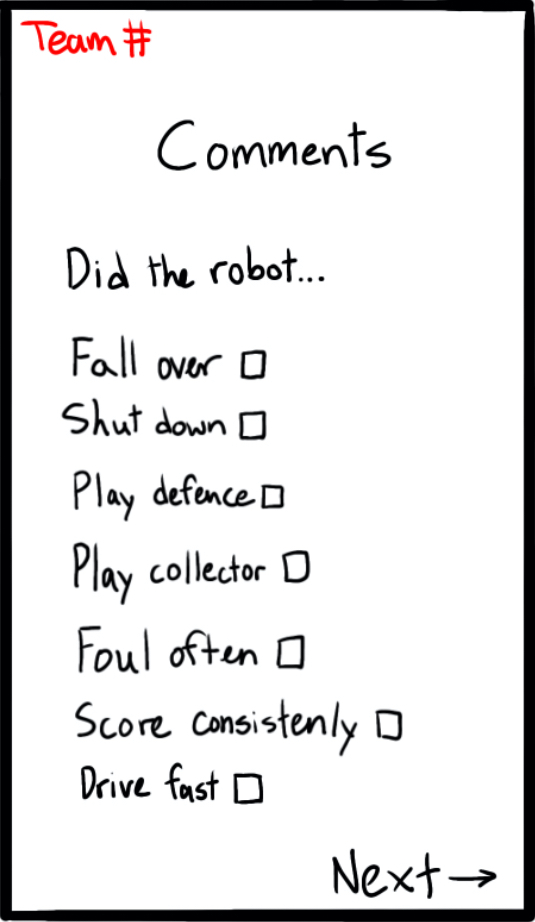 Team #
Comments
Did the robot...
Fall over □
Shut down □
Play defence □
Play collector □
Foul often □
Score consistenly □
Drive fast □
Next →